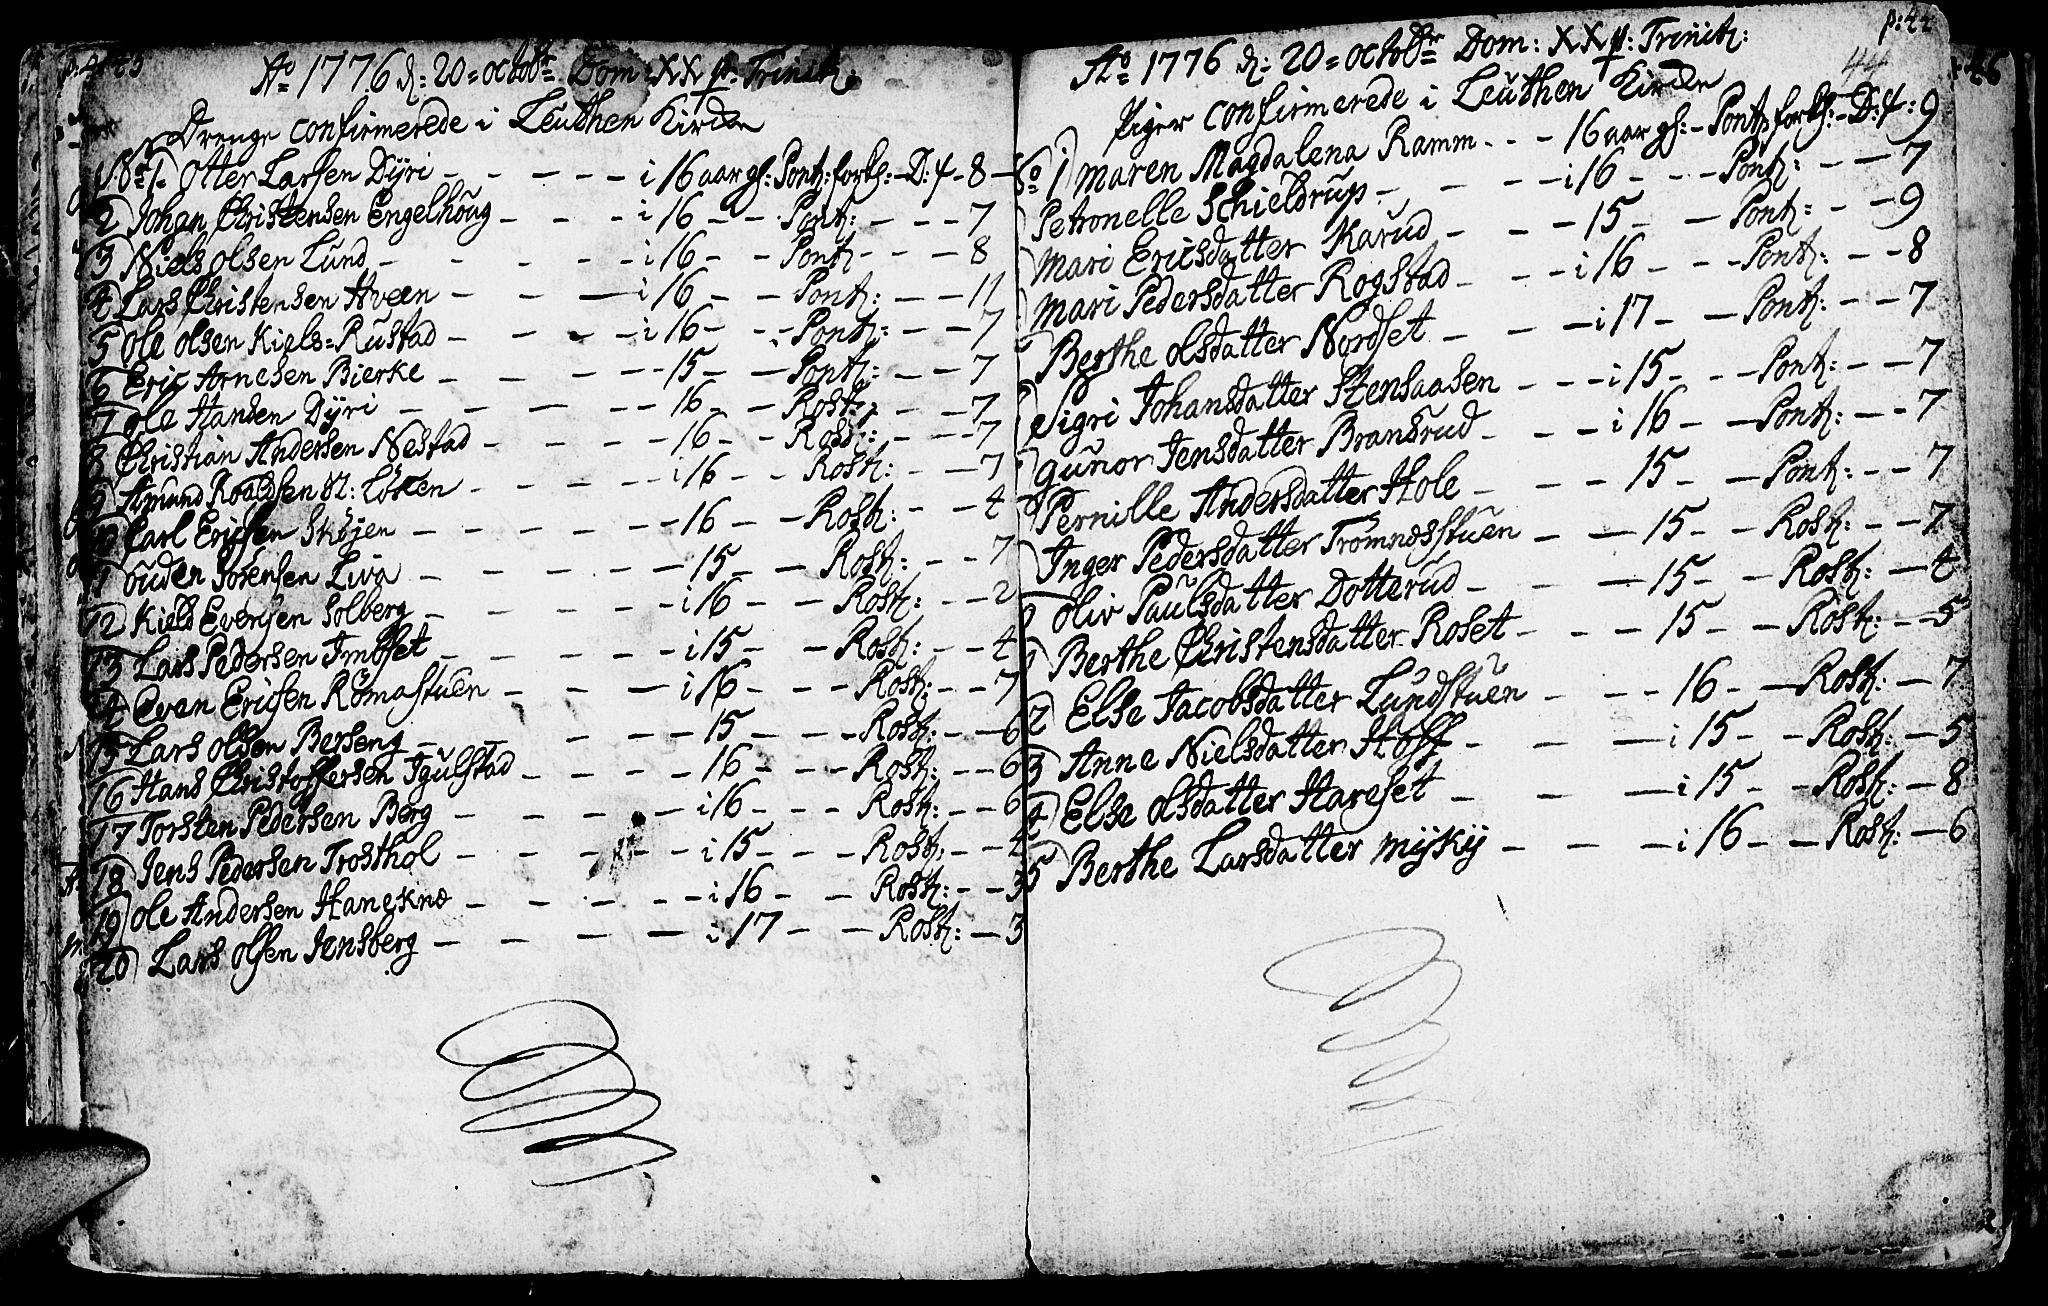 Aº 1776 d: 20 = octobr Dom: XX p. Trinit:
Drenge confirmerede i Leuthen Kircke
No 1. Otter Larsen Dÿri - - - - - i 16 aar gl: Pont: forkl: - D: 4 - 8
2 Johan Christensen Engelhoug - - - i 16 - - Pont: - - - 7
3 Niels olsen Lund - - - - i 16 - - Pont: - - - 8
4 Lars Christensen Aveen - - - i 16 - - Pont: - - 11
5 Ole olsen Kiels=Rustad - - - i 16 - - Pont: - - 7
6 Eric Arnesen Bierke - - - - 15 - - Pont: - - 7
7 Ole Hansen Dÿri - - - - 16 - - Rosk: - - 7
8 Christian Andersen Nestad - - - - 16 - - Rosk: - - 7
9 Amund Roaldsen Løken - - - - i 16 - - Rosk: - - 7
Carl Ericsen Skøjen - - - - 16 - - Rosk: - - 4
11 ouden Sørensen Liva - - - - 15 - - Rosk: - - 7
12 Kield Evensen Solberg - - - - i 16 - - Rosk: - - 2
13 Lars Pedersen Imøset - - - - i 15 - - Rosk: - - 4
14 Even Ericsen Rømastuen - - - i 16 - - - Rosk: - - 7
15 Lars olsen Berseng - - - - 15 - - - Rosk: - - 6
16 Hans Christoffersen Igulstad - - - - 16 - - - Rosk: - - 6
17 Torsten Pedersen Berg - - - - i 16 - - - Rosk: - - 6
18 Jens Pedersen Trosthol - - - - i 15 - - - Rosk: - - 4
19 Ole Andersen Haneknæ - - - - i 16 - - - Rosk: - - 3
20 Lars olsen Jensberg - - - - i 17 - - Rosk: - 3
p: 44
44
46
Aº 1776 d: 20 = octobr Dom: XX p: Trinit:
Piger confirmerede i Leuthen Kircke
No 1 Maren Magdalena Ramm - - - 16 aar gl: - Pont: forkl: - D: 4: 9
Petronelle Schieldrup - - - i 16 - - - Pont: - - 7
Mari Ericsdatter Karud - - - 15 - - Pont: - - 9
Mari Pedersdatter Rogstad - - - i 16 - - - Pont: - - 8
Berthe olsdatter Nordset - - - i 17 - - Pont: - - 7
Sigri Johansdatter Stensaasen - - - i 15 - - - Pont: - - 7
Gunor Jensdatter Brandrud - - - i 16 - - Pont: - - 7
Pernille Andersdatter Hole - - - 15 - - Pont: - - 7
Inger Pedersdatter Trømnæsstuen - - 15 - - Rosk: - - 7
oliv Paulsdatter Dotterud - - - 15 - - Rosk: - 4
1 Berthe Christensdatter Roset - - - 15 - - Rosk: - - 5
2 Else Jacobsdatter Lundstuen - - - 16 - - Rosk: - 7
3 Anne Nielsdatter Hoff - - - i 15 - - Rosk: - 5
4 Else olsdatter Hareset - - - i 15 - - Rosk: - 8
5 Berthe Larsdatter Mÿkÿ - - - i 16 - - Rosk: - 6